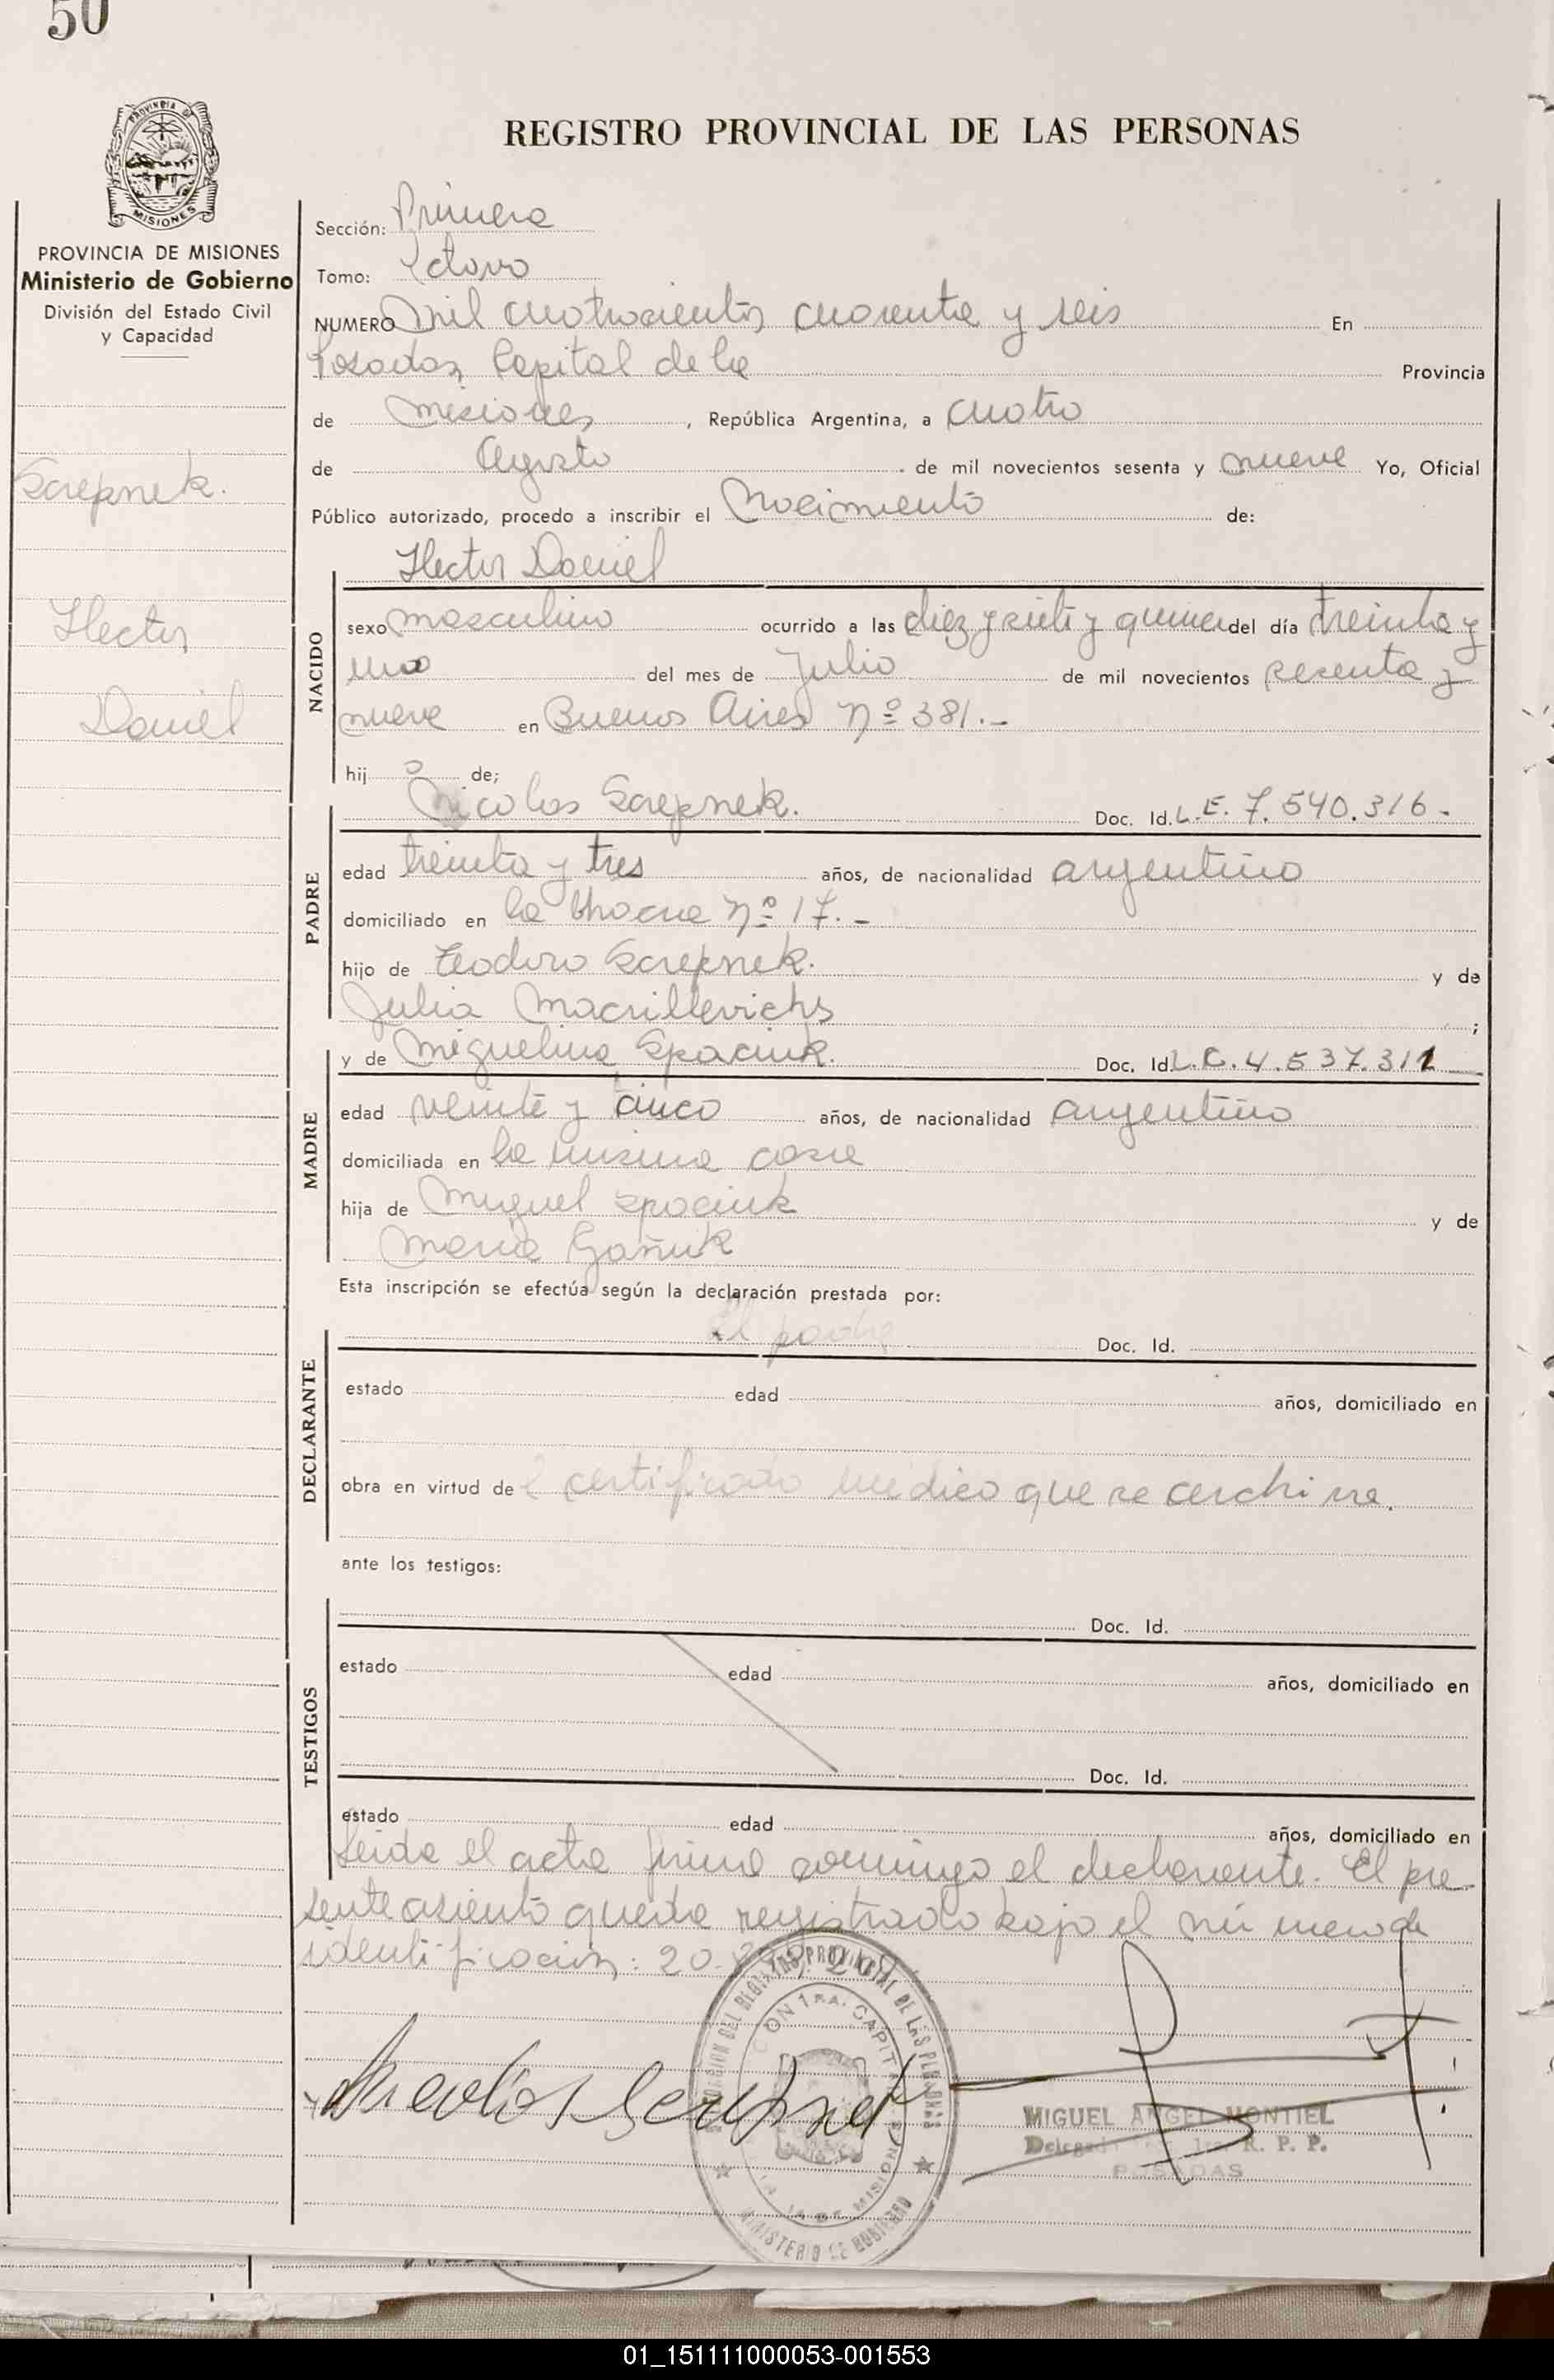 50
PROVINCIA DE MISIONES
PROVINCIA DE MISIONES
Ministerio de Gobierno
División del Estado Civil
y Capacidad
Screpnek.
Hector
Daniel
REGISTRO PROVINCIAL DE LAS PERSONAS
Sección: Primera
Tomo: Octavo
NUMERO Mil cuatrocientos cuarenta y seis En
Posadas, Capital de la Provincia
de Misiones, República Argentina, a cuatro
de Agosto de mil novecientos sesenta y nueve Yo, Oficial
Público autorizado, procedo a inscribir el Nacimiento de:
Hector Daniel
NACIDO
sexo masculino ocurrido a las diez y siete y quince del día treinta y
uno del mes de Julio de mil novecientos sesenta y
nueve en Buenos Aires Nº 381.-
hij o de;
PADRE
Nicolas Screpnek. Doc. Id. L.E. 7.540.316.
edad treinta y tres años, de nacionalidad argentino
domiciliado en la Nº 17.-
hijo de Teodoro Screpnek. y de
Julia Macrillevichs ;
MADRE
y de Miguelina Spaciuk. Doc. Id. L.C. 4.537.311
edad veinte y cinco años, de nacionalidad argentino
domiciliada en la misma casa
hija de Miguel Spaciuk y de
Maria Gañuk
Esta inscripción se efectúa según la declaración prestada por:
DECLARANTE
El padre Doc. Id.
estado edad años, domiciliado en
obra en virtud de l certificado médico que se archiva.
ante los testigos:
TESTIGOS
Doc. Id.
estado edad años, domiciliado en
Doc. Id.
estado edad años, domiciliado en
Leida el acta firma conmigo el declarante. El pre
sente asiento queda registrado bajo el número de
identificación: 20.
Nicolas Screpnek
MINISTERIO DE GOBIERNO
MIGUEL ANGEL MONTIEL
R. P. P.
POSADAS
01_151111000053-001553